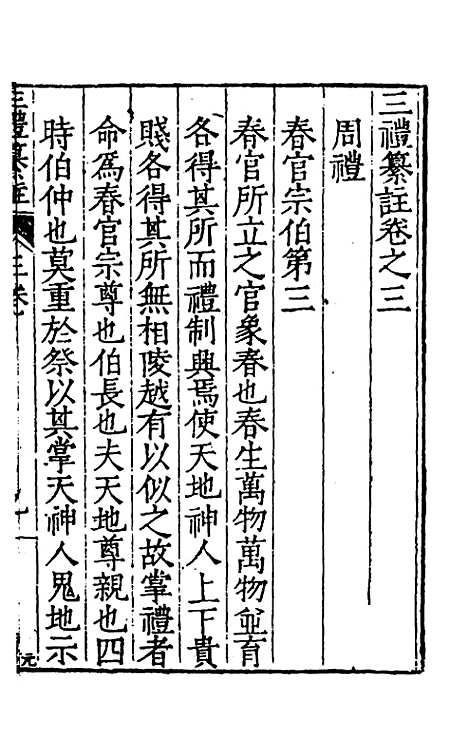 三禮纂註卷之三
周禮
春官宗伯第三
春官所立之官象春也春生萬物萬物並育
各得其所而禮制興焉使天地神人上下貴
賤各得其所無相陵越有以似之故掌禮者
命為春官宗尊也伯長也夫天地尊親也四
時伯仲也莫重於祭以其掌天神人鬼地示
三禮纂註 三卷 一 元